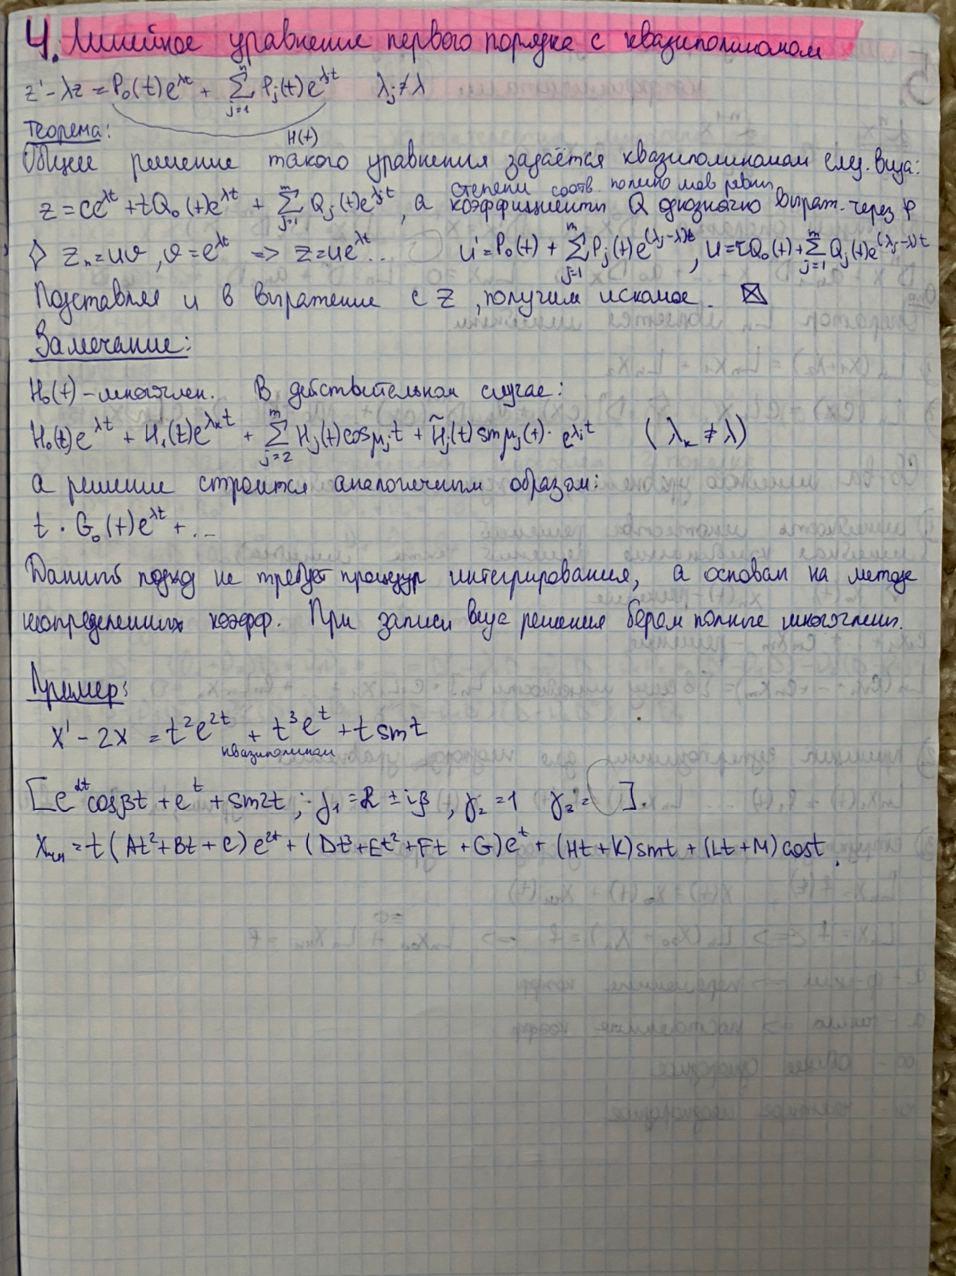 4. Линейное уравнение первого порядка с квазиполиномом
z' - λz = P₀(t)e^{λt} + ∑_{j=1}^{m} P_j(t)e^{λ_j t}    λ_j ≠ λ
H(t)
Теорема:
Общее решение такого уравнения задаётся квазиполиномом след. вида:
z = ce^{λt} + tQ₀(t)e^{λt} + ∑_{j=1}^{m} Q_j(t)e^{λ_j t}, а степени соотв. полиномов равны, коэффициенты Q однозначно выраж. через P
◊ z_н = uv, v = e^{λt} => z = ue^{λt}...    u' = P₀(t) + ∑_{j=1}^{m} P_j(t)e^{(λ_j-λ)t}, u = tQ₀(t) + ∑_{j=1}^{m} Q_j(t)e^{(λ_j-λ)t}
Подставляя u в выражение с z, получим искомое. ⊠
Замечание:
H₀(t) - многочлен. В действительном случае:
H₀(t)e^{λt} + H₁(t)e^{λ_к t} + ∑_{j=2}^{m} H_j(t)cosμ_j t + H̃_j(t)sinμ_j(t)·e^{λ_j t}    (λ_к ≠ λ)
а решение строится аналогичным образом:
t · G₀(t)e^{λt} + ...
Данный подход не требует процедур интегрирования, а основан на методе
неопределенных коэфф. При записи вида решения берем полные многочлены.
Пример:
x' - 2x = t²e^{2t} + t³e^{t} + t sint
квазиполином
[e^{αt}cosβt + e^{t} + sin2t; γ₁ = α ± iβ, γ₂ = 1 γ₃ = ].
x_{чн} = t(At² + Bt + C)e^{2t} + (Dt³ + Et² + Ft + G)e^{t} + (Ht + K)sint + (Lt + M)cost.